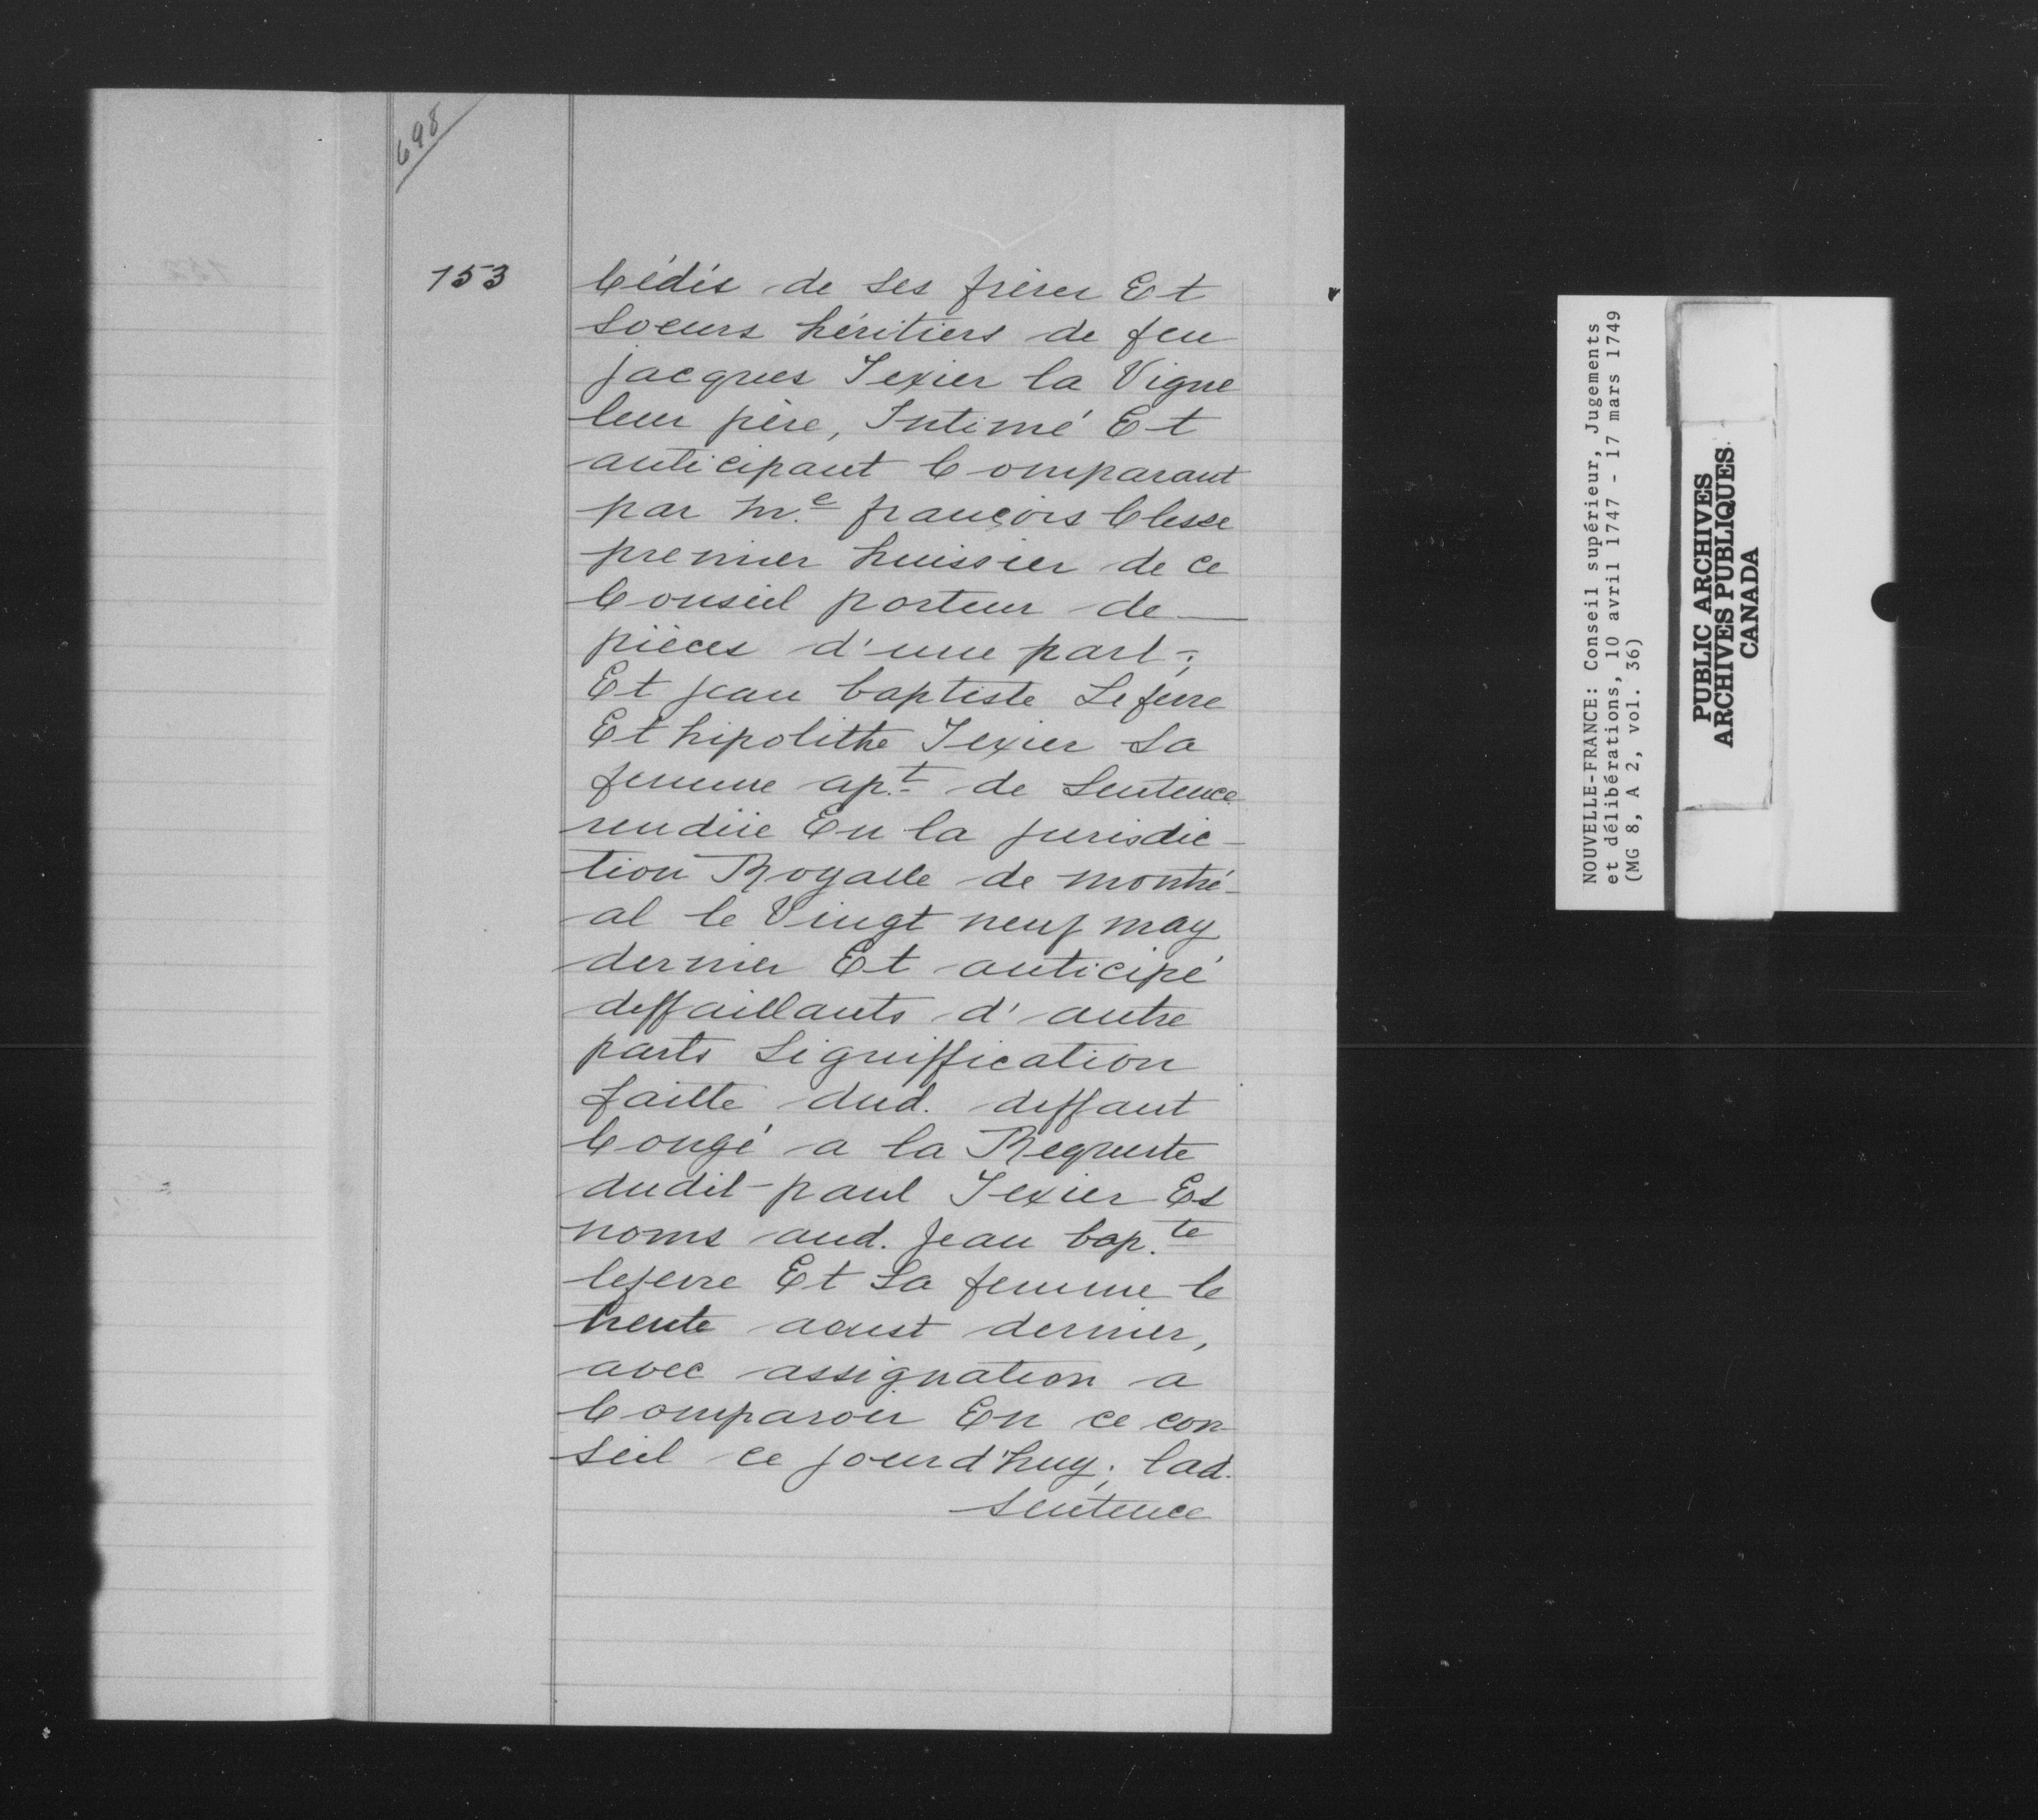 698
153
Cédés de ses frères Et
soeurs héritiers de feu
jacques Texier la Vigne
leur père, Intimé Et
anticipant Comparant
par m.e françois Clesse
premier huissier de ce
Conseil porteur de —
pièces d'une part;
Et jean baptiste Lefevre
Et hipolithe Texier sa
femme ap.t de Sentence
rendüe En la jurisdic-
tion Royalle de montré-
al le Vingt neuf may
dernier Et anticipé
deffaillants d'autre
parts Signiffication
faitte dud. deffaut
Congé a la Requeste
dudit paul Texier Es
noms aud. Jean bap.te
lefevre Et Sa femme le
trente aoust dernier,
avec assignation a
Comparoir En ce con-
seil ce jourd'huy; lad.
sentence
NOUVELLE-FRANCE: Conseil supérieur, Jugements
et délibérations, 10 avril 1747 - 17 mars 1749
(MG 8, A 2, vol. 36)
PUBLIC ARCHIVES
ARCHIVES PUBLIQUES
CANADA